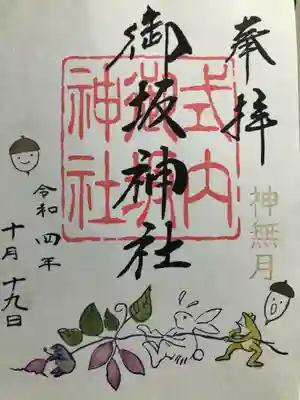 奉拝
神無月
御坂神社
式内
神社
令和四年
十月十九日